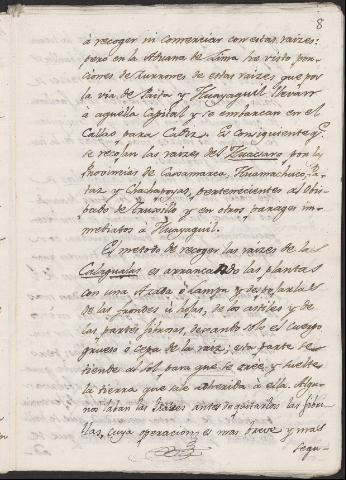 8
à recoger ni comerciar con estas raizes:
pero en la Aduana de Lima he visto por-
ciones de zurrones de estas raizes que por
la via de Paita y Huayaquil llevan
à aquella Capital y se embarcan en el
Callao para Cadiz. Es consiguiente q.e
se recojan las raizes del Huacsaro por las
Provincias de Caxamarca, Huamachuco, Pa-
taz y Chachapoyas, pertenecientes al Obis-
pado de Truxillo y en otros parages in-
mediatos à Huayaquil.
El metodo de recoger las raizes de la
Calaguala es arrancando las plantas
con una Azada ò Lampa y despojarlas
de las frondes ù hojas, de los astiles y de
las partes fibrosas, dexando solo el cuerpo
grueso ò cepa de la raiz; esta parte se
tiende al sol para que se oree y suelte
la tierra que saca adherida à ella. Algu-
nos laban las raizes antes de quitarlas las fibri-
llas, cuya operacion es mas breve y mas
segu-